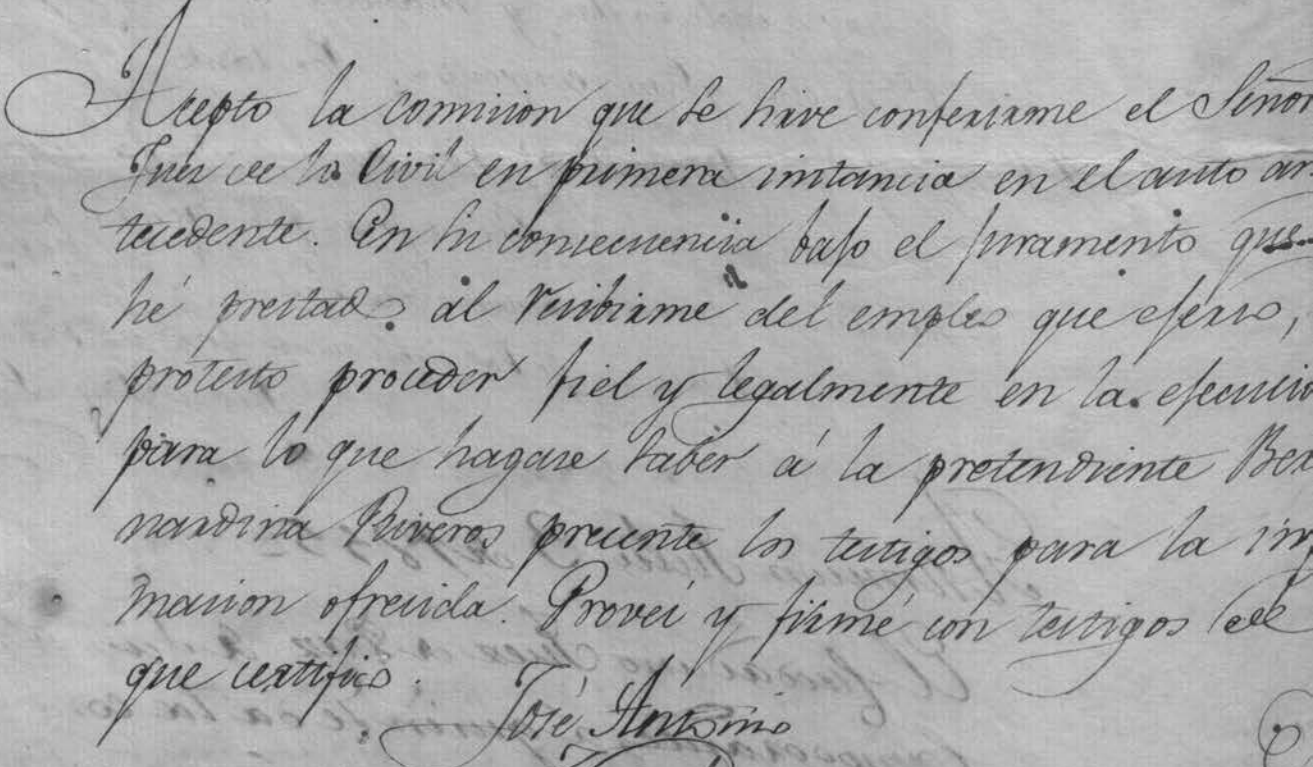 Acepto la comision que se sirve conferirme el Señor
Juez de lo Civil en primera instancia en el auto an
tecedente. En su consecuencia bajo el juramento que
hé prestado al recibirme del empleo que ejerso,
protesto proceder fiel y legalmente en la ejecucio
para lo que hagase saber á la pretendiente Ber
nardina Riveros presente los testigos para la inf
macion ofrecida. Proveí y firmé con testigos de
que certifico.
José Antonio